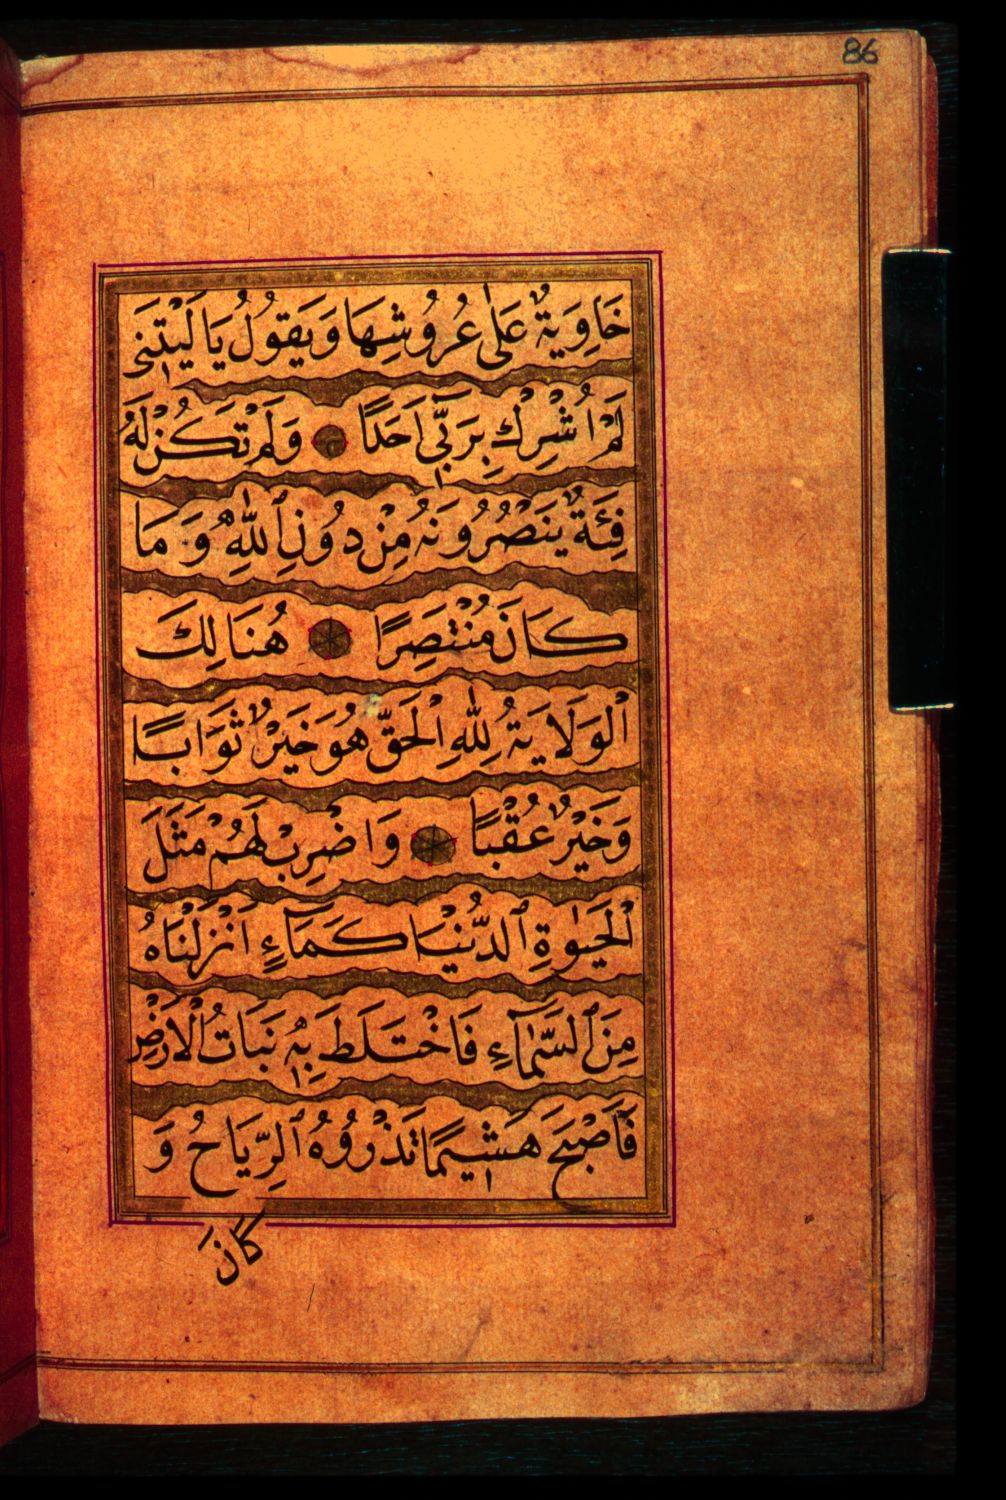 86
خَاوِيَةٌ عَلٰى عُرُوشِهَا وَيَقُولُ يَا لَيْتَنِى
لَمْ اُشْرِكْ بِرَبِّٓى اَحَدًا وَلَمْ تَكُنْ لَهُ
فِئَةٌ يَنْصُرُونَهُ مِنْ دُونِ ٱللّٰهِ وَمَا
كَانَ مُنْتَصِرًا هُنَالِكَ
الْوَلَايَةُ لِلّٰهِ الْحَقِّ هُوَ خَيْرٌ ثَوَابًا
وَخَيْرٌ عُقْبًا وَاضْرِبْ لَهُمْ مَثَلَ
الْحَيٰوةِ ٱلدُّنْيَا كَمَآءٍ اَنْزَلْنَاهُ
مِنَ ٱلسَّمَآءِ فَاخْتَلَطَ بِهِ نَبَاتُ الْاَرْضِ
فَاَصْبَحَ هَشِيمًا تَذْرُوهُ ٱلرِّيَاحُ وَ
كَانَ